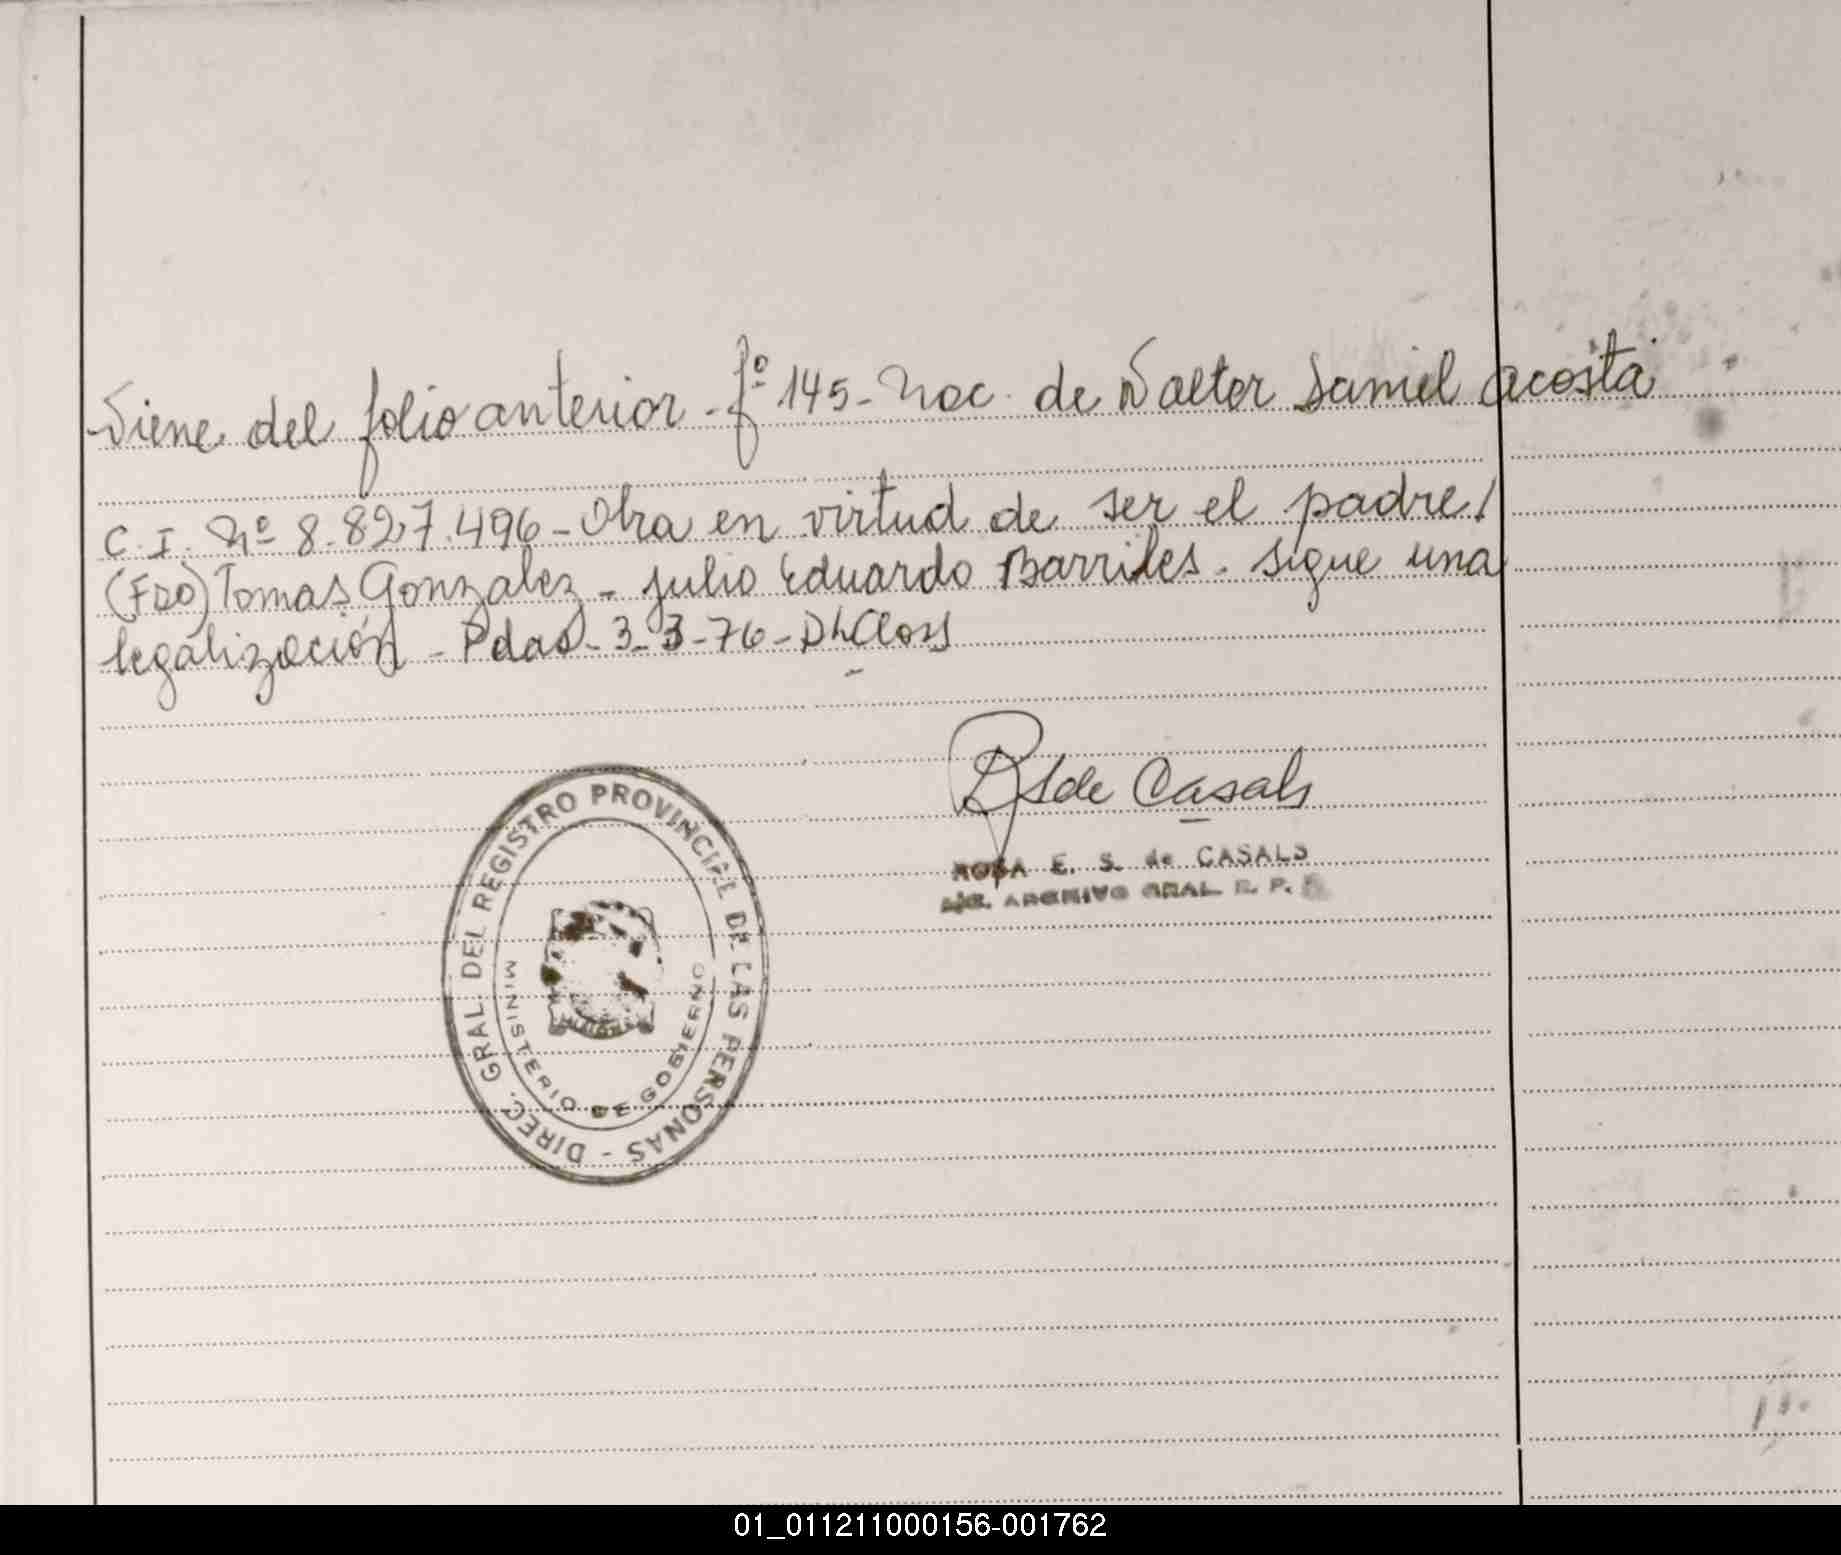 Viene del folio anterior - fº 145 - Nac. de Walter Daniel Acosta
C.I. Nº 8.827.496 - Obra en virtud de ser el padre/
(FDO) Tomas Gonzalez - Julio Eduardo Barriles. sigue una
legalización - Pdas - 3-3-76 -
RS de Casals
ROSA E. S. de CASALS
ARCHIVO GRAL R. P.
DIREC. GRAL DEL REGISTRO PROVINCIAL DE LAS PERSONAS -
MINISTERIO DE GOBIERNO
01_011211000156-001762